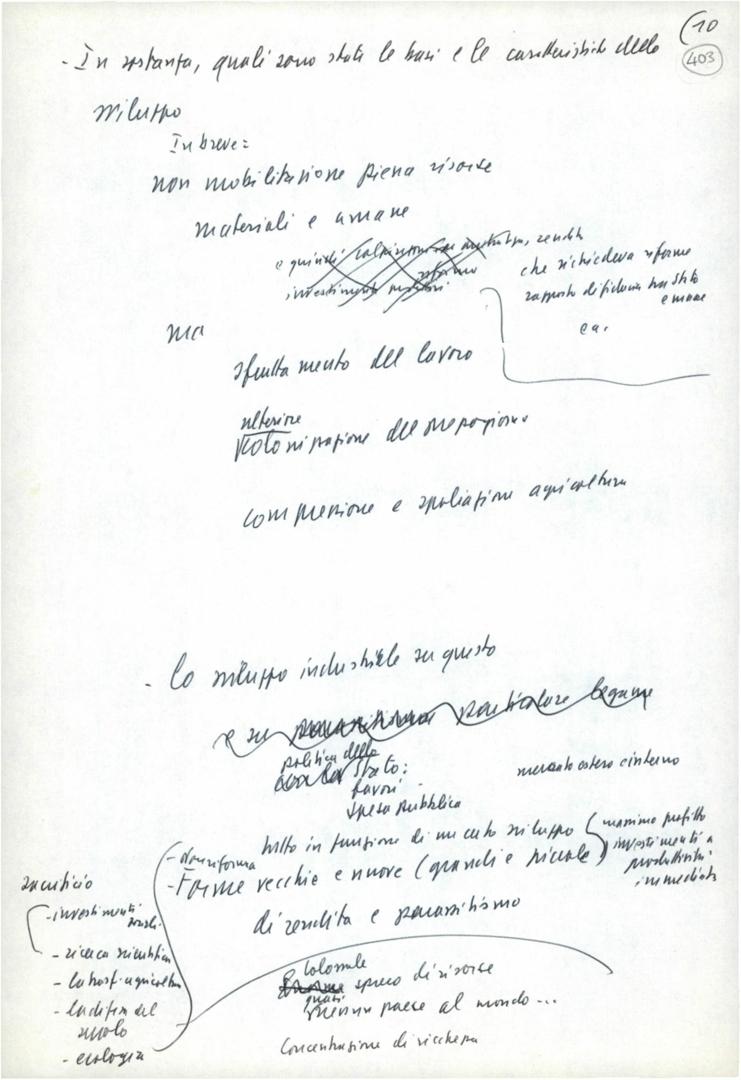 (10
403
- In sostanza, quali sono state le basi e le caratteristiche dello
sviluppo
In breve:
non mobilitazione piena risorse
materiali e umane
e quindi
rendita
riforme
investimenti
che richiedeva riforme
rapporto di fiducia tra Stato
e masse
ecc.
ma
sfruttamento del lavoro
ulteriore
colonizzazione del mezzogiorno
compressione e spoliazione agricoltura
- lo sviluppo industriale su questo
e su particolare legame
politica dello
con lo Stato:
favori
spesa pubblica
mercato estero e interno
tutto in funzione di un certo sviluppo
massimo profitto
investimenti a
produttività
immediata
- Non riforma
- Forme vecchie e nuove (grandi e piccole)
di rendita e parassitismo
sacrificio
- investimenti
- ricerca scientifica
- la trasf. agricoltura
- la difesa del
suolo
- ecologia
Colossale
spreco di risorse
quasi
nessun paese al mondo...
Concentrazione di ricchezza